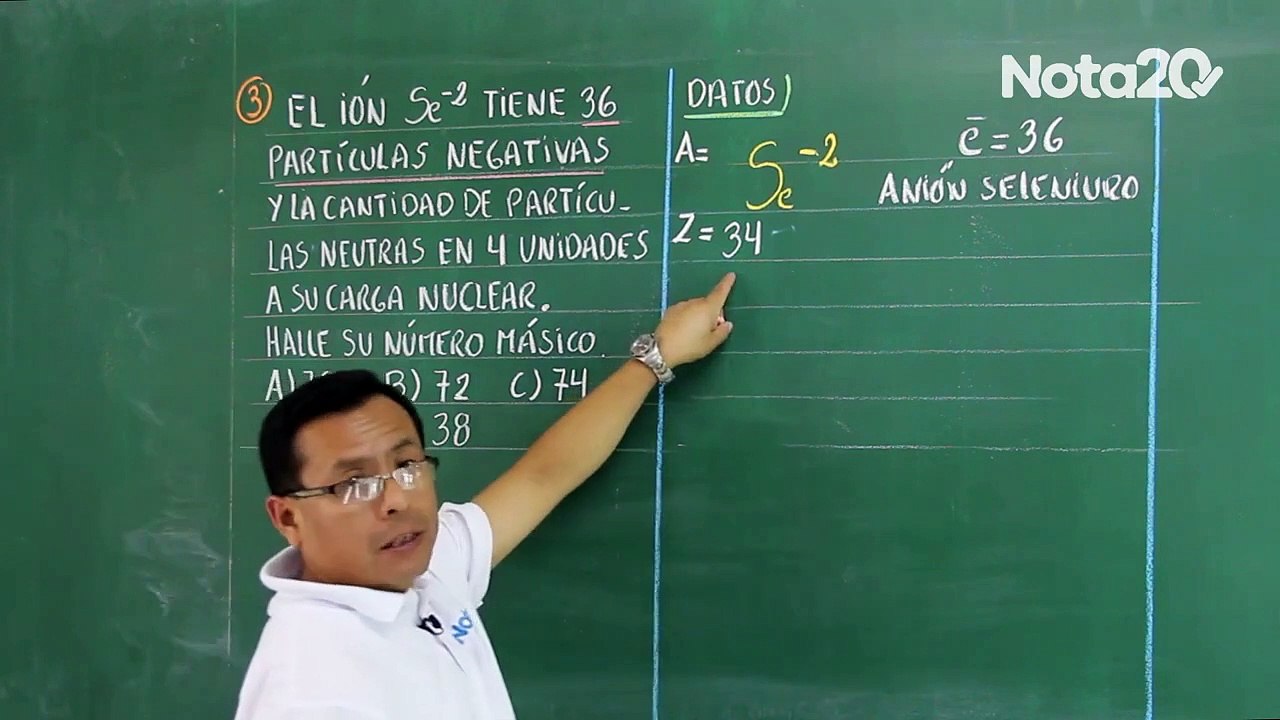 Nota20
3 EL IÓN Se⁻² TIENE 36
PARTÍCULAS NEGATIVAS
Y LA CANTIDAD DE PARTÍCU-
LAS NEUTRAS EN 4 UNIDADES
A SU CARGA NUCLEAR.
HALLE SU NÚMERO MÁSICO.
A) B) 72 C) 74
38
DATOS)
A= Se⁻² e⁻=36
ANIÓN SELENIURO
Z=34